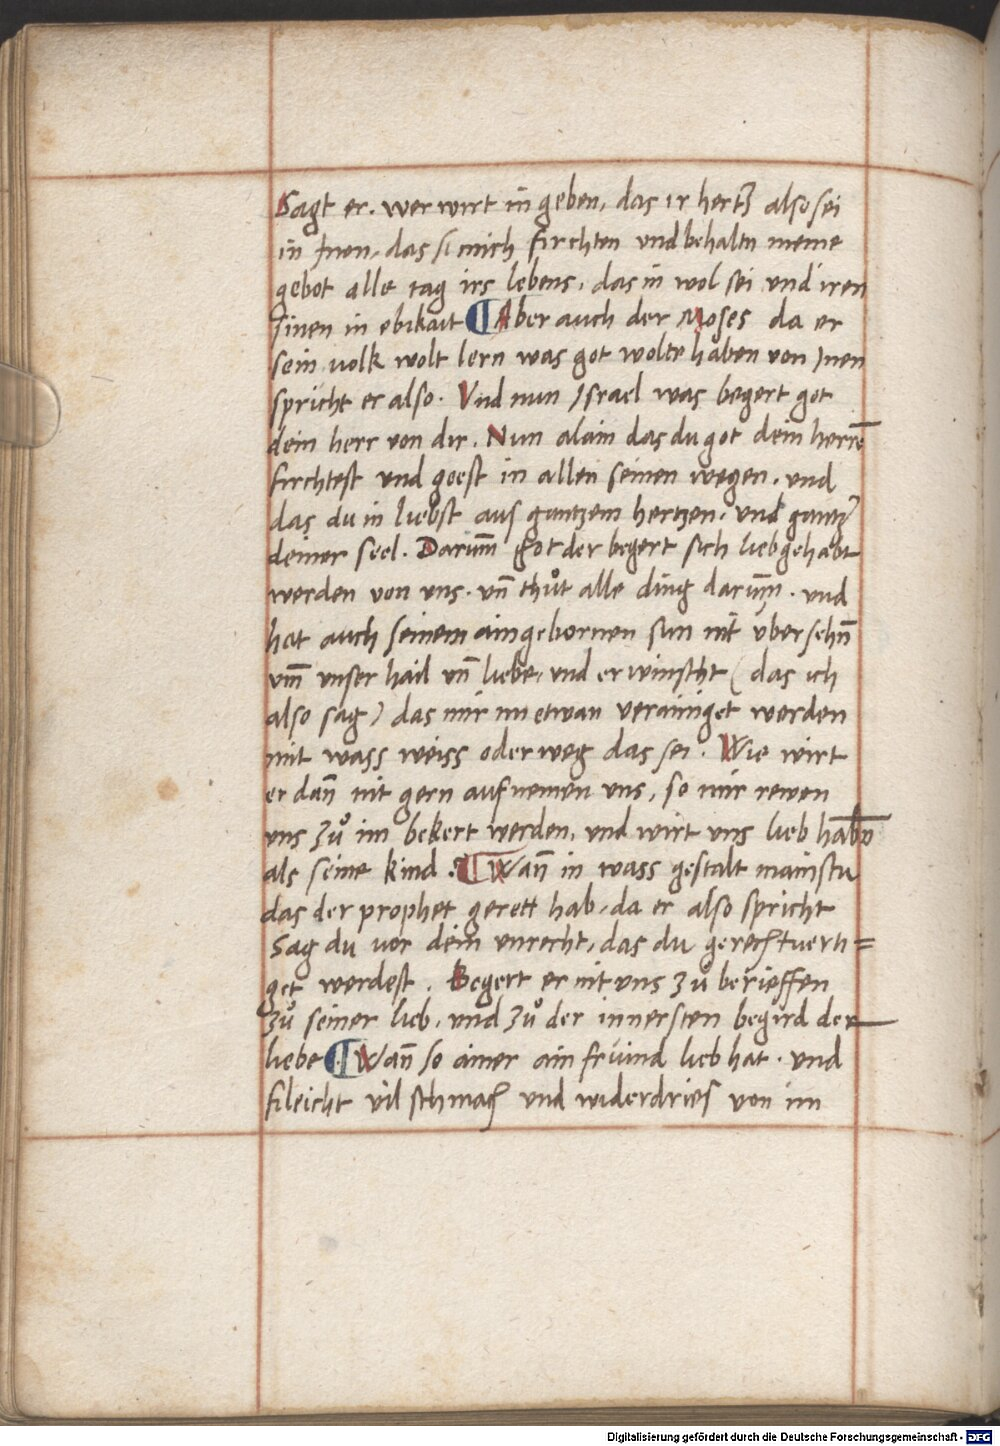 Sagt er. wer wirt in geben, das ir hertz also sei
in jnen, das si mich firchten und behaltn meine
gebot alle tag irs lebens, das in wol sei und iren
sinen in ebikait ¶ Aber auch der Moses da er
sein volk wolt lern was got wolte haben von jnen
spricht er also. Vnd nun jsrael was begert got
dein herr von dir. Nun alain das du got dein herrē
firchtest und geest in allen seinen wegen. und
das du in liebst aus gantzem hertzen. und gantzer
deiner seel. Darum̄ got der begert sich lieb gehabt
werden von uns. un̄ thuͦt alle ding darum̄. und
hat auch seinem aingebornen sun nit übersehn̄
um̄ unser hail un̄ liebe, und er winscht ( das ich
also sag ) das mir im etwan verainiget werden
mit wass weiss oder weg das sei. Wie wirt
er dan̄ nit gern aufnemen uns, so mir rewen
uns zuͦ im bekert werden, und wirt uns lieb habn̄
als seine kind. ¶ Wan̄ in wass gestalt mainstu
das der prophet gerett hab, da er also spricht
Sag du vor dein unrecht, das du gerechtverti=
get werdest. Begert er nit uns zuͦ berieffen
zuͦ seiner lieb, und zuͦ der innersten begird der
liebe ¶ Wan̄ so ainer ain fruind lieb hat. und
fileicht vil schmach und widerdries von im
Digitalisierung gefördert durch die Deutsche Forschungsgemeinschaft - DFG